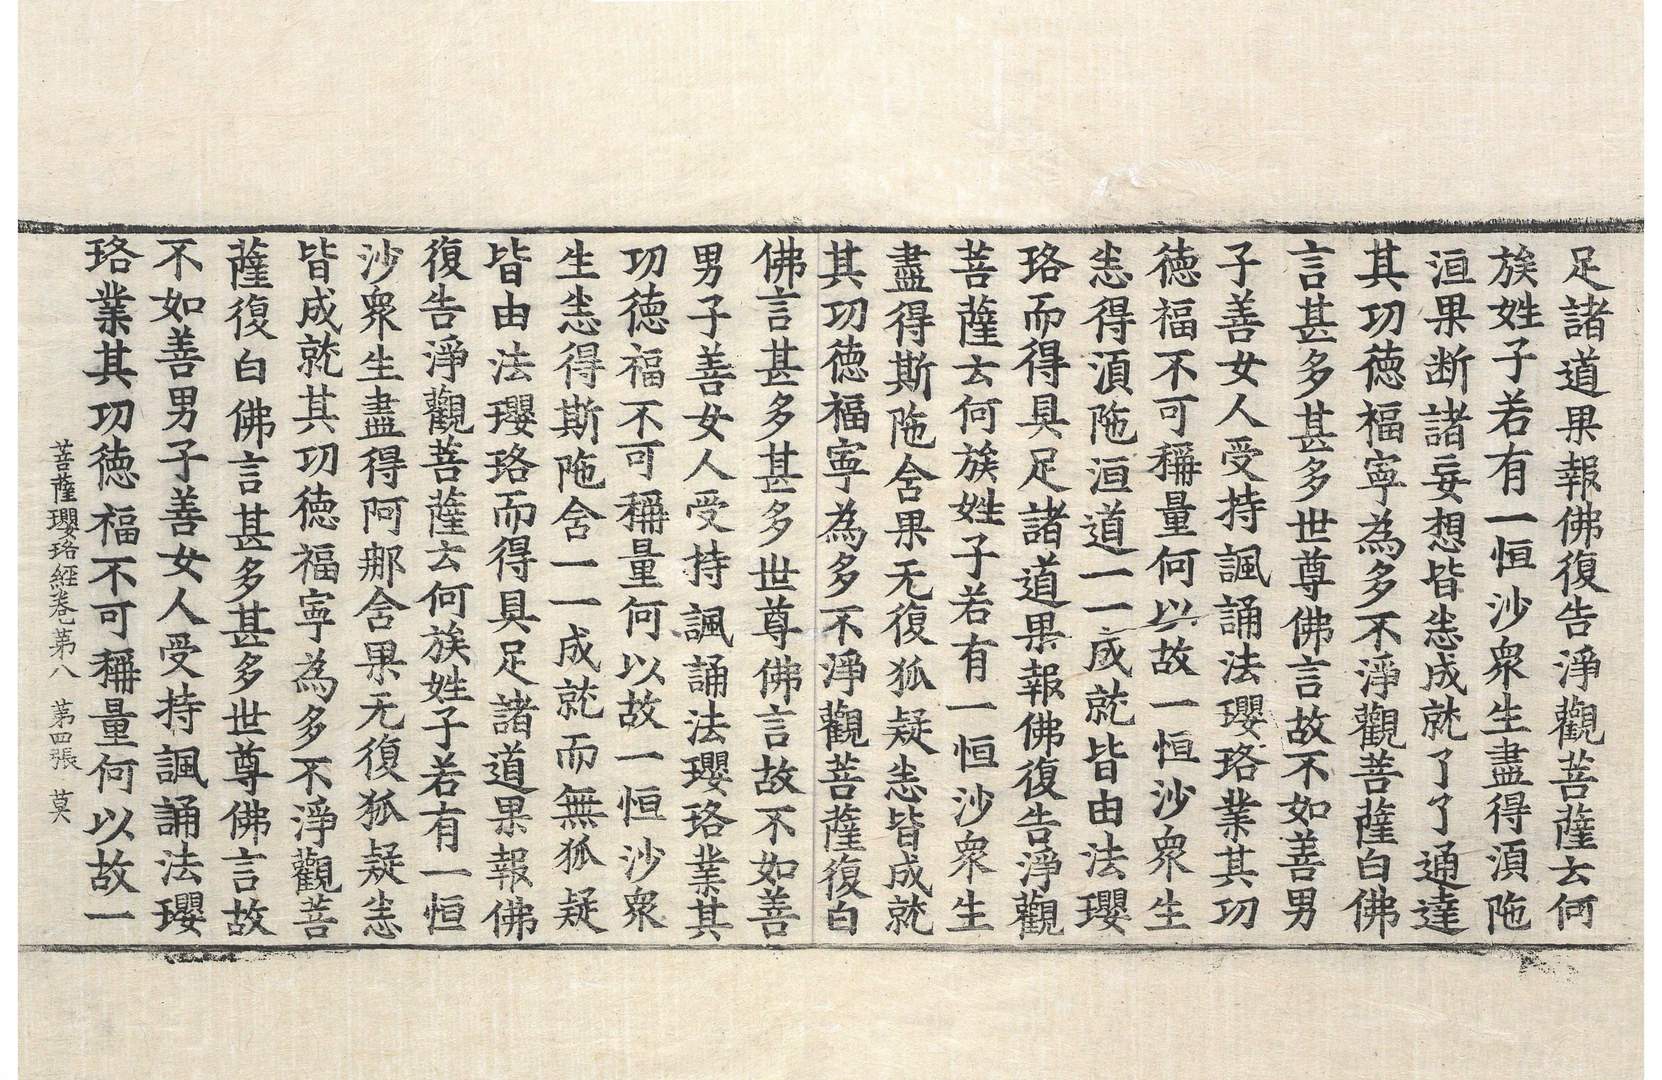 足諸道果報佛復告淨觀菩薩云何
族姓子若有一恒沙衆生盡得湏陁
洹果断諸妄想皆悉成就了了通達
其功徳福寧為多不淨觀菩薩白佛
言甚多甚多世尊佛言故不如善男
子善女人受持諷誦法瓔珞業其功
徳福不可稱量何以故一恒沙衆生
悉得湏陁洹道一一成就皆由法瓔
珞而得具足諸道果報佛復告淨觀
菩薩云何族姓子若有一恒沙衆生
盡得斯陁舍果无復狐疑悉皆成就
其功徳福寧為多不淨觀菩薩復白
佛言甚多甚多世尊佛言故不如善
男子善女人受持諷誦法瓔珞業其
功徳福不可稱量何以故一恒沙衆
生悉得斯陁舍一一成就而無狐疑
皆由法瓔珞而得具足諸道果報佛
復告淨觀菩薩云何族姓子若有一恒
沙衆生盡得阿郍舍果无復狐疑悉
皆成就其功徳福寧為多不淨觀菩
薩復白佛言甚多甚多世尊佛言故
不如善男子善女人受持諷誦法瓔
珞業其功徳福不可稱量何以故一
菩薩瓔珞経卷第八 第四張 莫